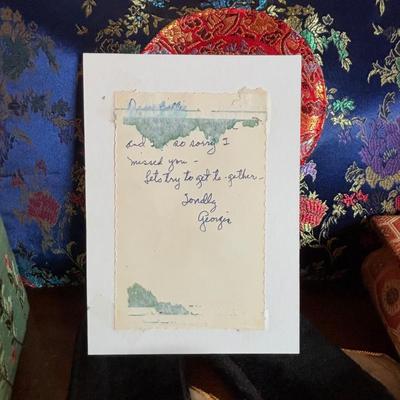 Dear
and I so sorry I
missed you -
Lets try to get to-gether -
Fondly
Georgia